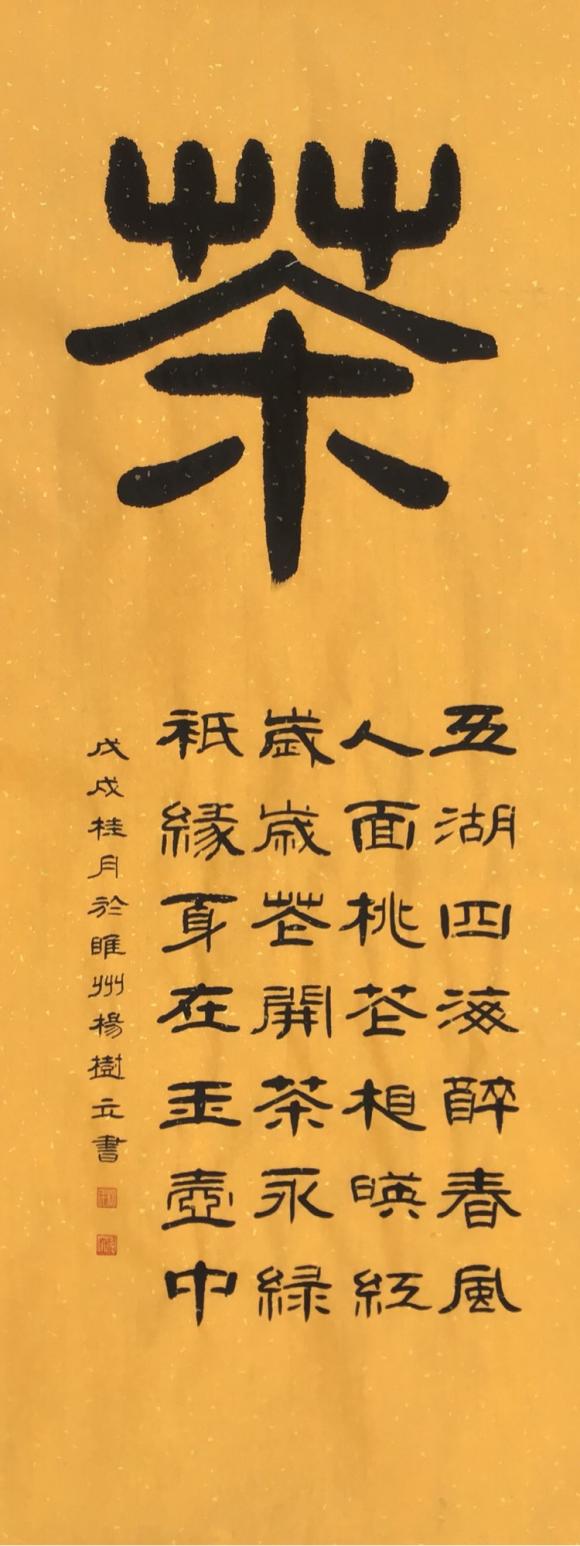 茶
五湖四海醉春風
人面桃花相暎紅
歲歲花開茶永緑
祇緣身在玉壺中
戊戌桂月於睢州楊樹立書